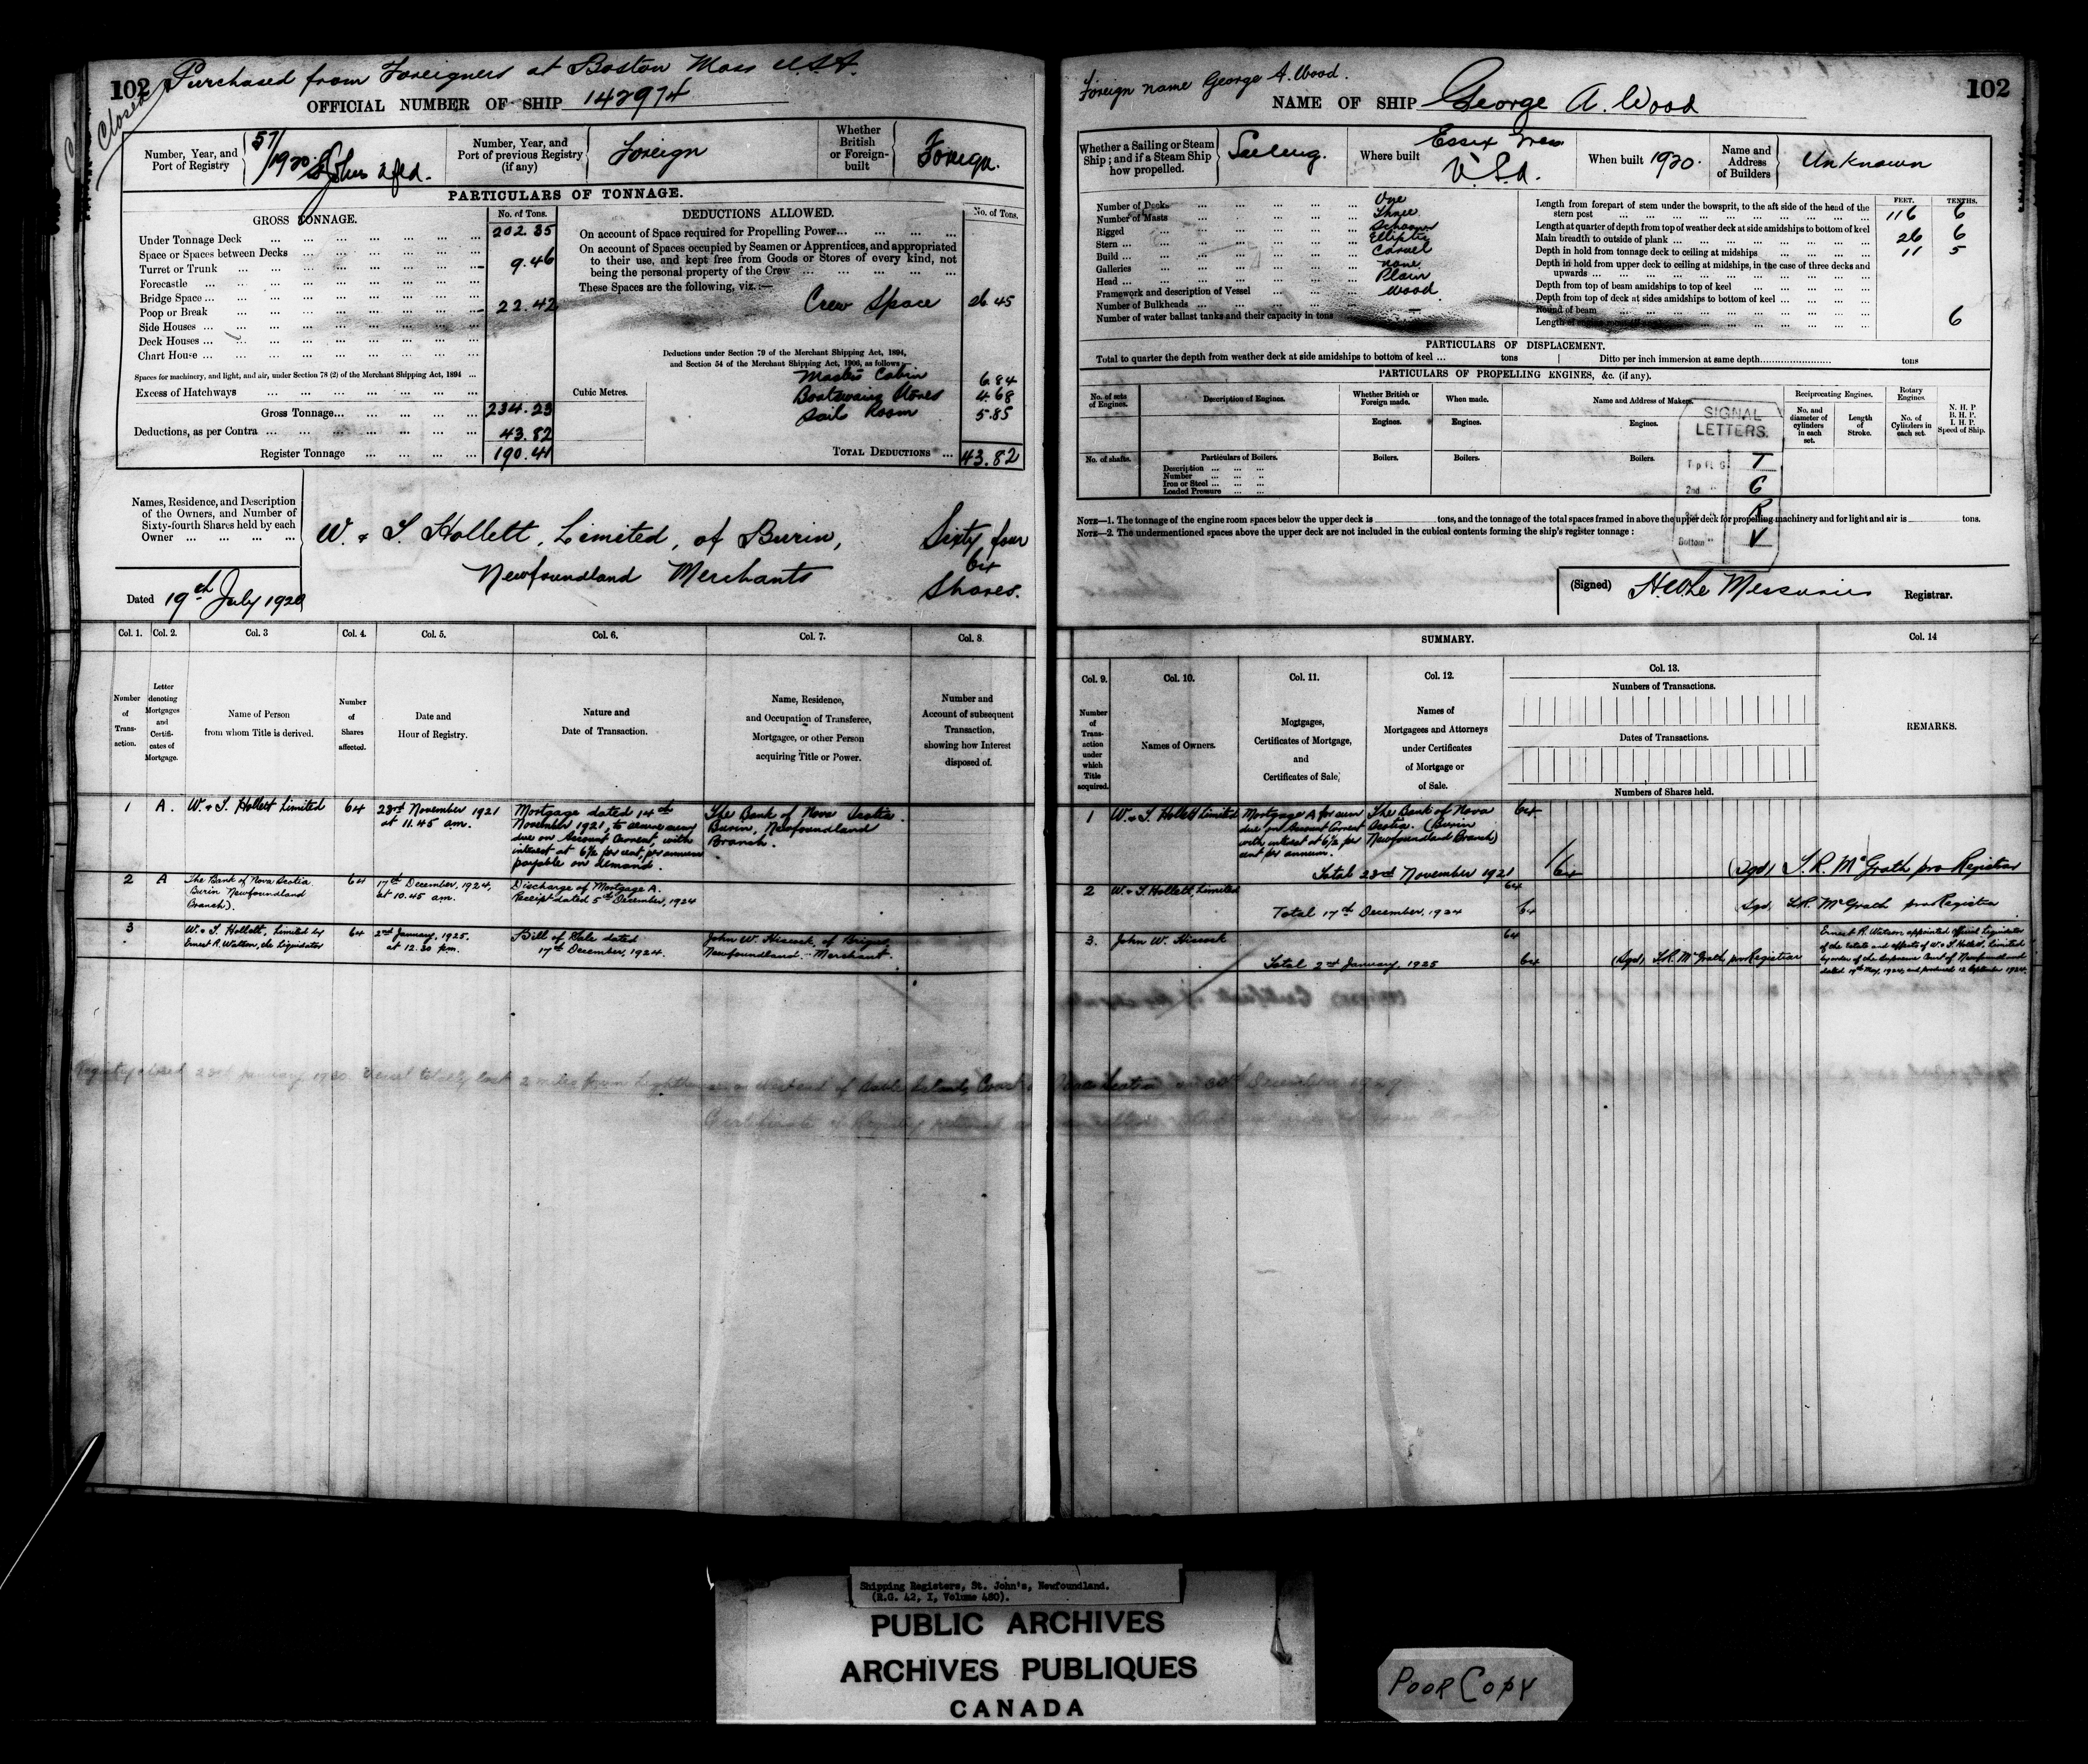 102 Purchased from Foreigners at Boston Mass U.S.A.
Closed
OFFICIAL NUMBER OF SHIP 142974
Number, Year, and Port of Registry
57/1920 St Johns Nfld.
Number, Year, and Port of previous Registry (if any)
Foreign
Whether British or Foreign-built
Foreign.
PARTICULARS OF TONNAGE.
GROSS TONNAGE. No. of Tons.
Under Tonnage Deck 202.35
Space or Spaces between Decks
Turret or Trunk 9.46
Forecastle
Bridge Space
Poop or Break 22.42
Side Houses
Deck Houses
Chart House
Spaces for machinery, and light, and air, under Section 78 (2) of the Merchant Shipping Act, 1894
Excess of Hatchways
Gross Tonnage 234.23
Deductions, as per Contra 43.82
Register Tonnage 190.41
Cubic Metres.
DEDUCTIONS ALLOWED. No. of Tons.
On account of Space required for Propelling Power
On account of Spaces occupied by Seamen or Apprentices, and appropriated
to their use, and kept free from Goods or Stores of every kind, not
being the personal property of the Crew
These Spaces are the following, viz.:—
Crew Space 26.45
Deductions under Section 79 of the Merchant Shipping Act, 1894,
and Section 54 of the Merchant Shipping Act, 1906, as follows—
Masters Cabin 6.84
Boatswains Stores 4.68
Sail Room 5.85
TOTAL DEDUCTIONS 43.82
Names, Residence, and Description
of the Owners, and Number of
Sixty-fourth Shares held by each
Owner
W. & T. Hollett, Limited, of Burin, Sixty four
64
Newfoundland Merchants Shares.
Dated 19th July 1920
Col. 1. Col. 2. Col. 3 Col. 4. Col. 5. Col. 6. Col. 7. Col. 8.
Number of Transaction.
Letter denoting Mortgages and Certificates of Mortgage.
Name of Person from whom Title is derived.
Number of Shares affected.
Date and Hour of Registry.
Nature and Date of Transaction.
Name, Residence, and Occupation of Transferee, Mortgagee, or other Person acquiring Title or Power.
Number and Account of subsequent Transaction, showing how Interest disposed of.
1 A. W. & T. Hollett Limited 64
23rd November 1921
at 11.45 am.
Mortgage dated 14th
November 1921, to secure sum
due on Account Current, with
interest at 6½ per cent, per annum
payable on demand.
The Bank of Nova Scotia.
Burin, Newfoundland
Branch.
2 A The Bank of Nova Scotia
Burin Newfoundland
Branch). 64
17th December, 1924,
at 10.45 am.
Discharge of Mortgage A.
Receipt dated 5th December, 1924
3 W. & T. Hollett, Limited by
Ernest R. Watson, the Liquidator 64
2nd January, 1925.
at 12.30 pm.
Bill of Sale dated
17th December, 1924.
John W. Hiscock, of Brigus,
Newfoundland. Merchant.
Registry closed 23rd January 1930. Vessel totally lost 2 miles from Lighthouse on West end of Sable Island, Coast of Nova Scotia on 30th December 1929
Certificate of Registry
Foreign name George A. Wood.
NAME OF SHIP George A. Wood 102
Whether a Sailing or Steam Ship; and if a Steam Ship how propelled.
Sailing.
Where built
Essex Mass
U.S.A.
When built 1920
Name and Address of Builders
Unknown
Number of Decks One
Number of Masts Three
Rigged Schooner
Stern Elliptic
Build Carvel
Galleries none
Head Plain
Framework and description of Vessel Wood.
Number of Bulkheads
Number of water ballast tanks and their capacity in tons —
FEET. TENTHS.
Length from forepart of stem under the bowsprit, to the aft side of the head of the
stern post 116 6
Length at quarter of depth from top of weather deck at side amidships to bottom of keel
Main breadth to outside of plank 26 6
Depth in hold from tonnage deck to ceiling at midships 11 5
Depth in hold from upper deck to ceiling at midships, in the case of three decks and
upwards
Depth from top of beam amidships to top of keel
Depth from top of deck at sides amidships to bottom of keel
Round of beam 6
PARTICULARS OF DISPLACEMENT.
Total to quarter the depth from weather deck at side amidships to bottom of keel tons
Ditto per inch immersion at same depth tons
PARTICULARS OF PROPELLING ENGINES, &c. (if any).
No. of sets of Engines.
Description of Engines.
Whether British or Foreign made.
When made.
Name and Address of Makers.
Reciprocating Engines.
No. and diameter of cylinders in each set.
Length of Stroke.
Rotary Engines.
No. of Cylinders in each set.
N. H. P
B. H. P.
I. H. P.
Speed of Ship.
Engines. Engines. Engines.
No. of shafts.
Particulars of Boilers.
Description
Number
Iron or Steel
Loaded Pressure
Boilers. Boilers. Boilers.
SIGNAL
LETTERS.
Top Flg T
2nd " G
3rd " R
Bottom " V
NOTE—1. The tonnage of the engine room spaces below the upper deck is tons, and the tonnage of the total spaces framed in above the upper deck for propelling machinery and for light and air is tons.
NOTE—2. The undermentioned spaces above the upper deck are not included in the cubical contents forming the ship's register tonnage:
(Signed) H W Le Messurier Registrar.
SUMMARY.
Col. 9. Col. 10. Col. 11. Col. 12. Col. 13. Col. 14
Number of Transaction under which Title acquired.
Names of Owners.
Mortgages, Certificates of Mortgage, and Certificates of Sale,
Names of Mortgagees and Attorneys under Certificates of Mortgage or of Sale.
Numbers of Transactions.
Dates of Transactions.
Numbers of Shares held.
REMARKS.
1 W. & T. Hollett Limited
Mortgage A for sum
due on Account Current
with interest at 6½ per
cent per annum.
The Bank of Nova
Scotia. (Burin
Newfoundland Branch)
64
Total 23rd November 1921 64
(Sgd) T. R. McGrath pro Registrar
2 W. & T. Hollett, Limited 64
Total 17th December, 1924 64
Sgd, T.R. McGrath pro Registrar
3. John W. Hiscock 64
Total 2nd January, 1925 64
(Sgd) T.R. McGrath, pro Registrar
Ernest R. Watson appointed official Liquidator
of the Estate and effects of W. & T. Hollett, Limited
by order of the Supreme Court of Newfoundland
dated 19th May, 1924, and produced 12 September 1924.
Shipping Registers, St. John's, Newfoundland.
(R.G. 42, I, Volume 480).
PUBLIC ARCHIVES
ARCHIVES PUBLIQUES
CANADA
POOR COPY